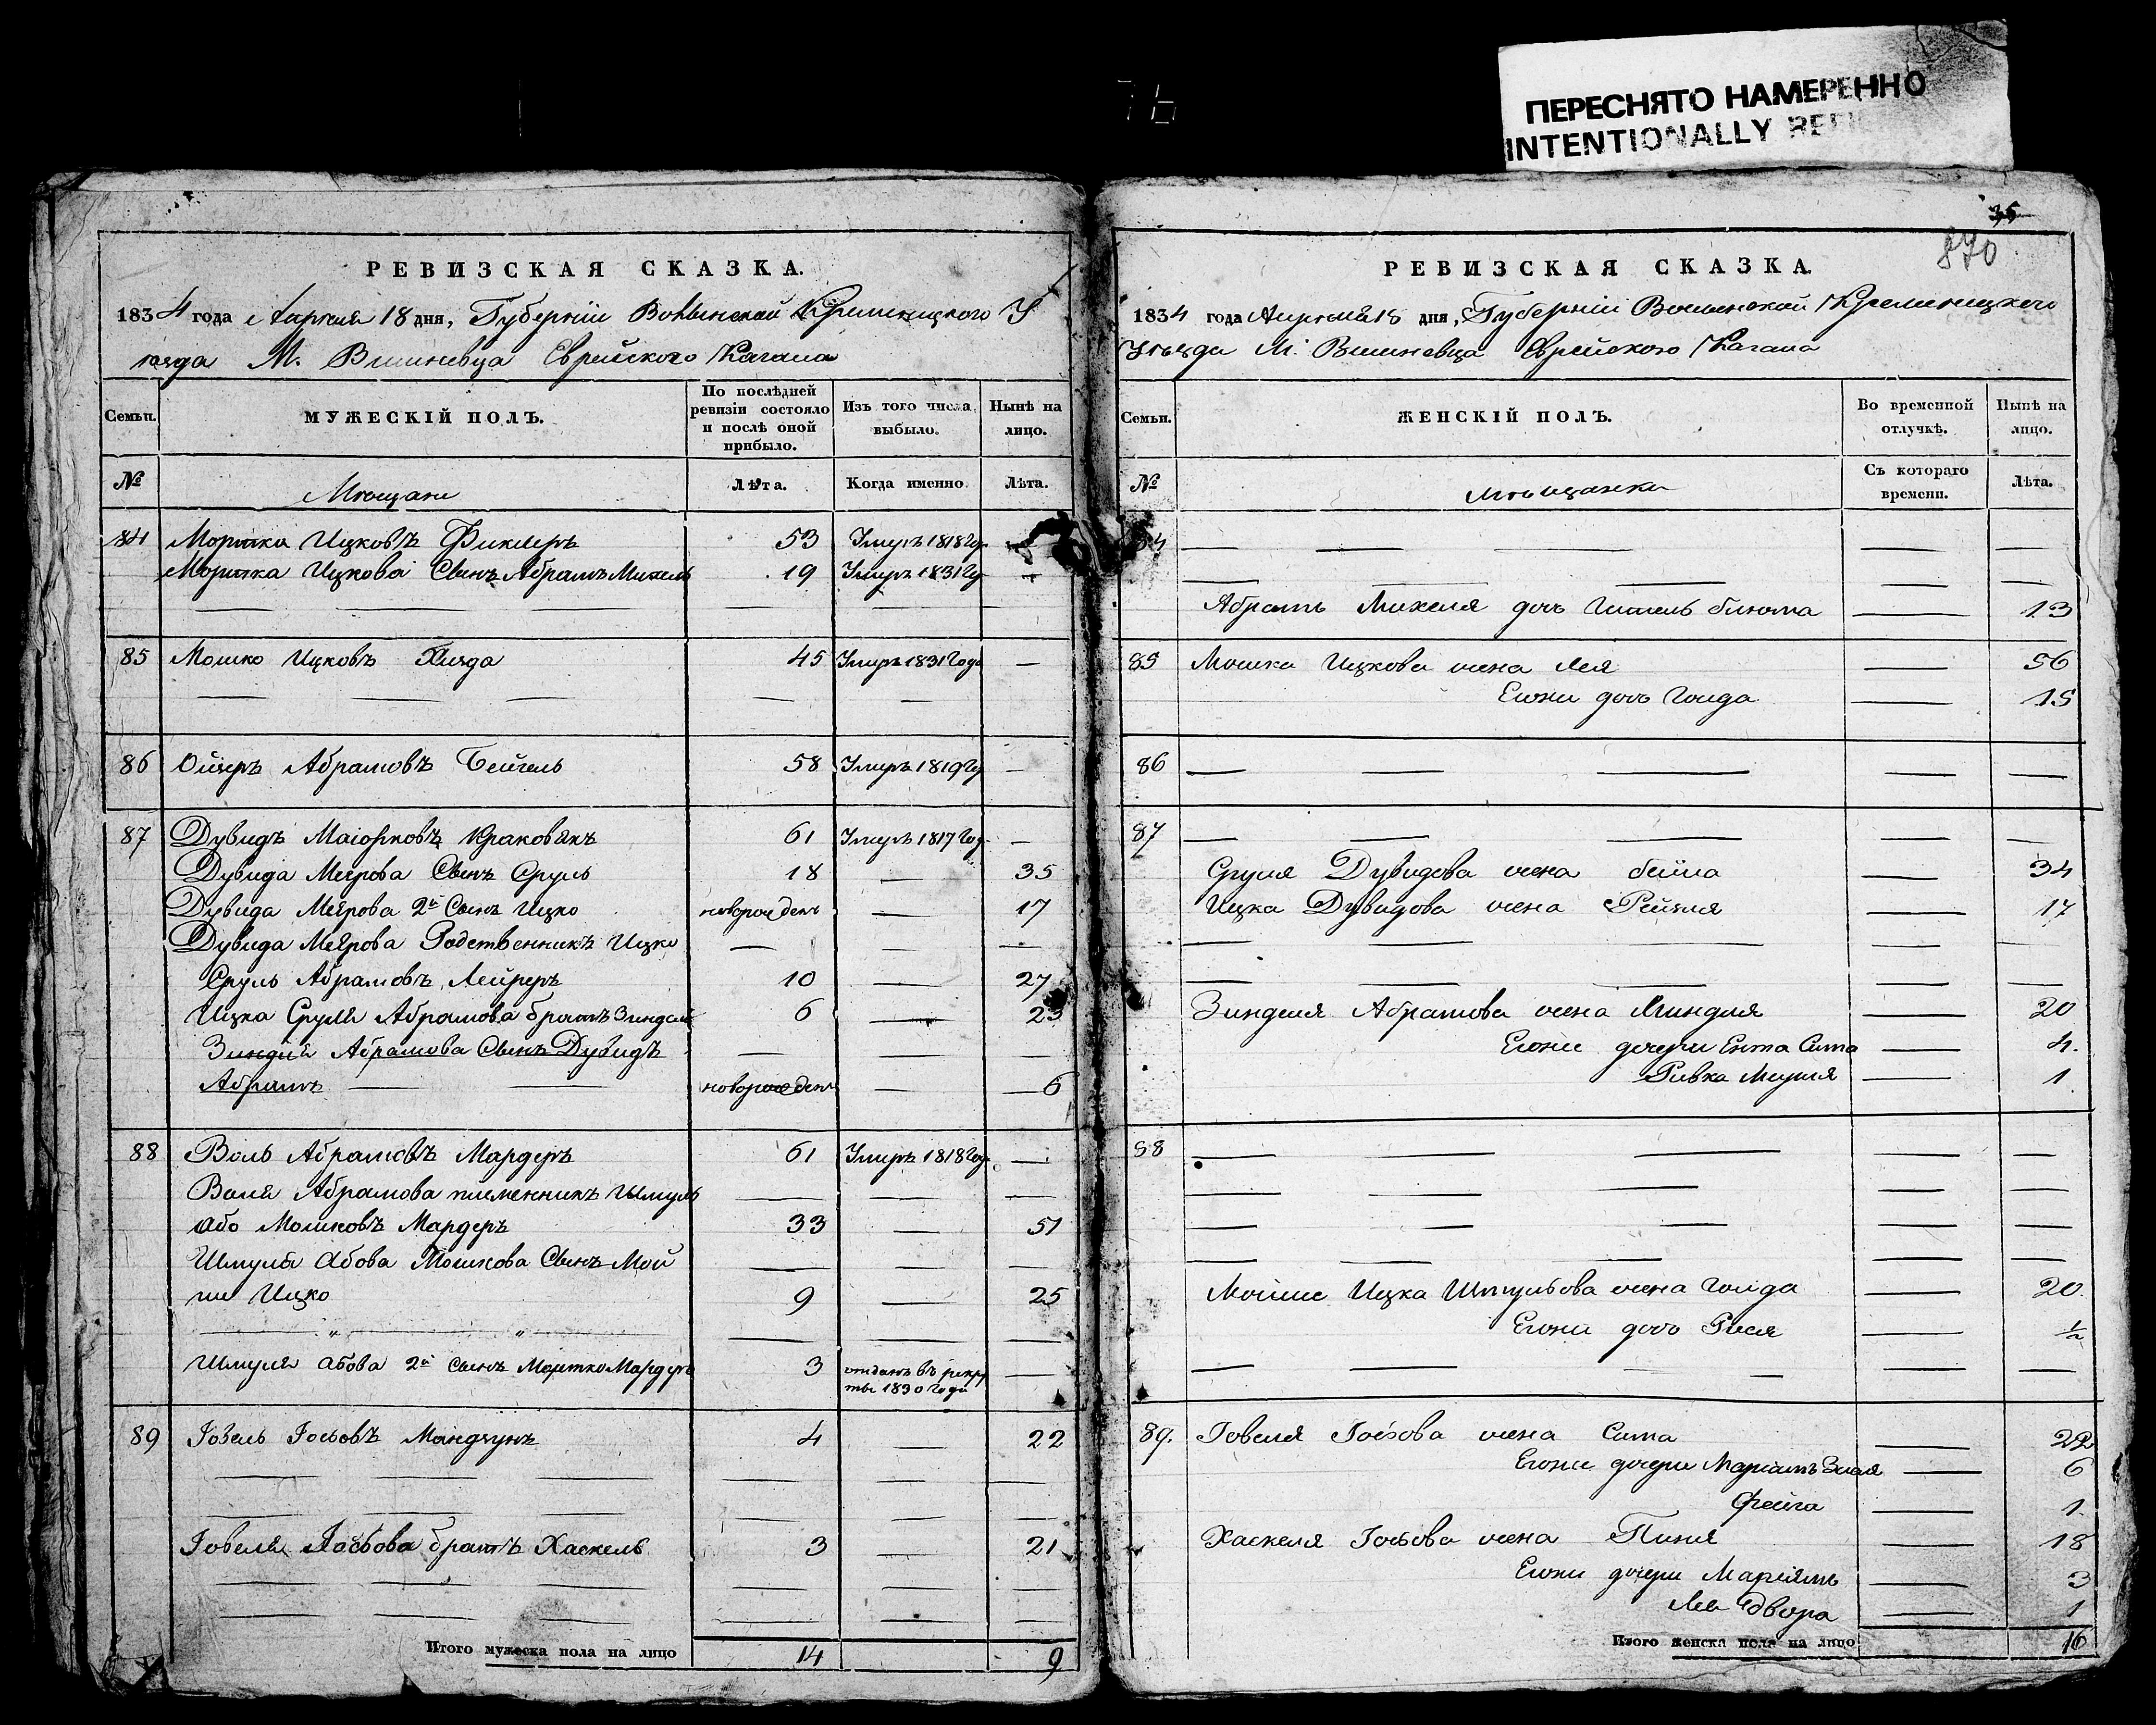 ПЕРЕСНЯТО НАМЕРЕННО
INTENTIONALLY
35
870
РЕВИЗСКАЯ СКАЗКА.
1834 года Апреля 18 дня, Губернiи Волынской Кременецкого У
езда М. Вишневца Еврейского Кагала
Семьи.
МУЖЕСКІЙ ПОЛЪ.
По послѣдней ревизіи состояло и послѣ оной прибыло.
Изъ того числа выбыло.
Нынѣ на лицо.
№
Мѣщане
Лѣта.
Когда именно.
Лѣта.
84 Мошка Ицковъ 53 Умеръ 1818 го. —
Мошка Ицкова Сынъ Абрамъ Михель 19 Умеръ 1831 го —
85 Мошко Ицковъ 45 Умеръ 1831 Года —
86 Ойзеръ Абрамовъ Бейгель 58 Умеръ 1819 го —
87 Дувидъ Маiорковъ Краковякъ 61 Умеръ 1817 год. —
Дувида Меерова Сынъ Сруль 18 — 35
Дувида Меерова 2й Сынъ Ицко новорожден — 17
Дувида Меерова Родственникъ Ицко — — —
Сруль Абрамовъ Лейреръ 10 — 27
Ицка Сруля Абрамова братъ Зиндель 6 — 23
Зинделя Абрамова Сынъ Дувидъ — —
Абрамъ — — новорожден — 6
88 Воль Абрамовъ Мардеръ 61 Умеръ 1818 Год. —
Воля Абрамова племенникъ Шмуль — — —
Або Мошковъ Мардеръ 33 — 51
Шмуля Абова Мошкова Сынъ Мой — — —
ше Ицко 9 — 25
Шмуля Абова 2й Сынъ Мошко Мардеръ 3 отданъ въ рекру —
ты 1830 года
89 Іовель Іосьовъ Мандзукъ 4 — 22
Іовеля Іосьова братъ Хаскель 3 — 21
Итого мужеска пола на лицо 14 9
РЕВИЗСКАЯ СКАЗКА.
1834 года Апреля 18 дня, Губернiи Волынской Кременецкого
Уѣзда М. Вишневца Еврейского Кагала
Семьи.
ЖЕНСКІЙ ПОЛЪ.
Во временной отлучкѣ.
Нынѣ на лицо.
№
Мѣщанки
Съ котораго времени.
Лѣта.
84 — — — — —
Абрамъ Михеля дочь блюма — 13
85 Мошка Ицкова жена Лея — 56
Егоже дочь Голда — 15
86 — — — — —
87 — — — — —
Сруля Дувидова жена бейла — 34
Ицка Дувидова жена Рейзля — 17
Зинделя Абрамова жена Миндля — 20
Егоже дочери Ента Сима — 4.
Ривка — 1
88 — — — — —
Мойше Ицка Шмульова жена Голда — 20.
Егоже дочь Рися — ½
89. Іовеля Іосьова жена Сима — 22
Егоже дочери Марiамъ Злая — 6
Фейга — 1.
Хаскеля Іосьова жена Пиня — 18
Егоже дочери Марiямъ — 3
Лея Двора — 1
Итого женска пола на лицо 16